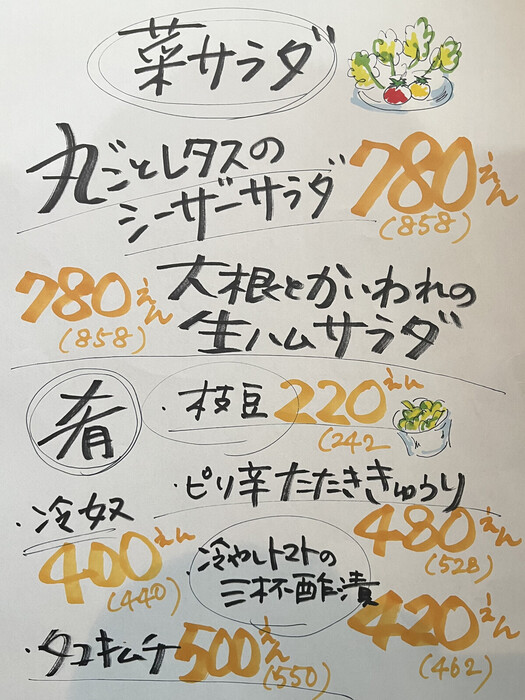 菜サラダ
丸ごとレタスの
シーザーサラダ
780えん
(858)
780えん
(858)
大根とかいわれの
生ハムサラダ
肴
・枝豆
220えん
(242
・ピリ辛たたききゅうり
480えん
(528)
・冷奴
400えん
(440)
・冷やしトマトの
三杯酢漬
420えん
(462)
・タコキムチ
500えん
(550)